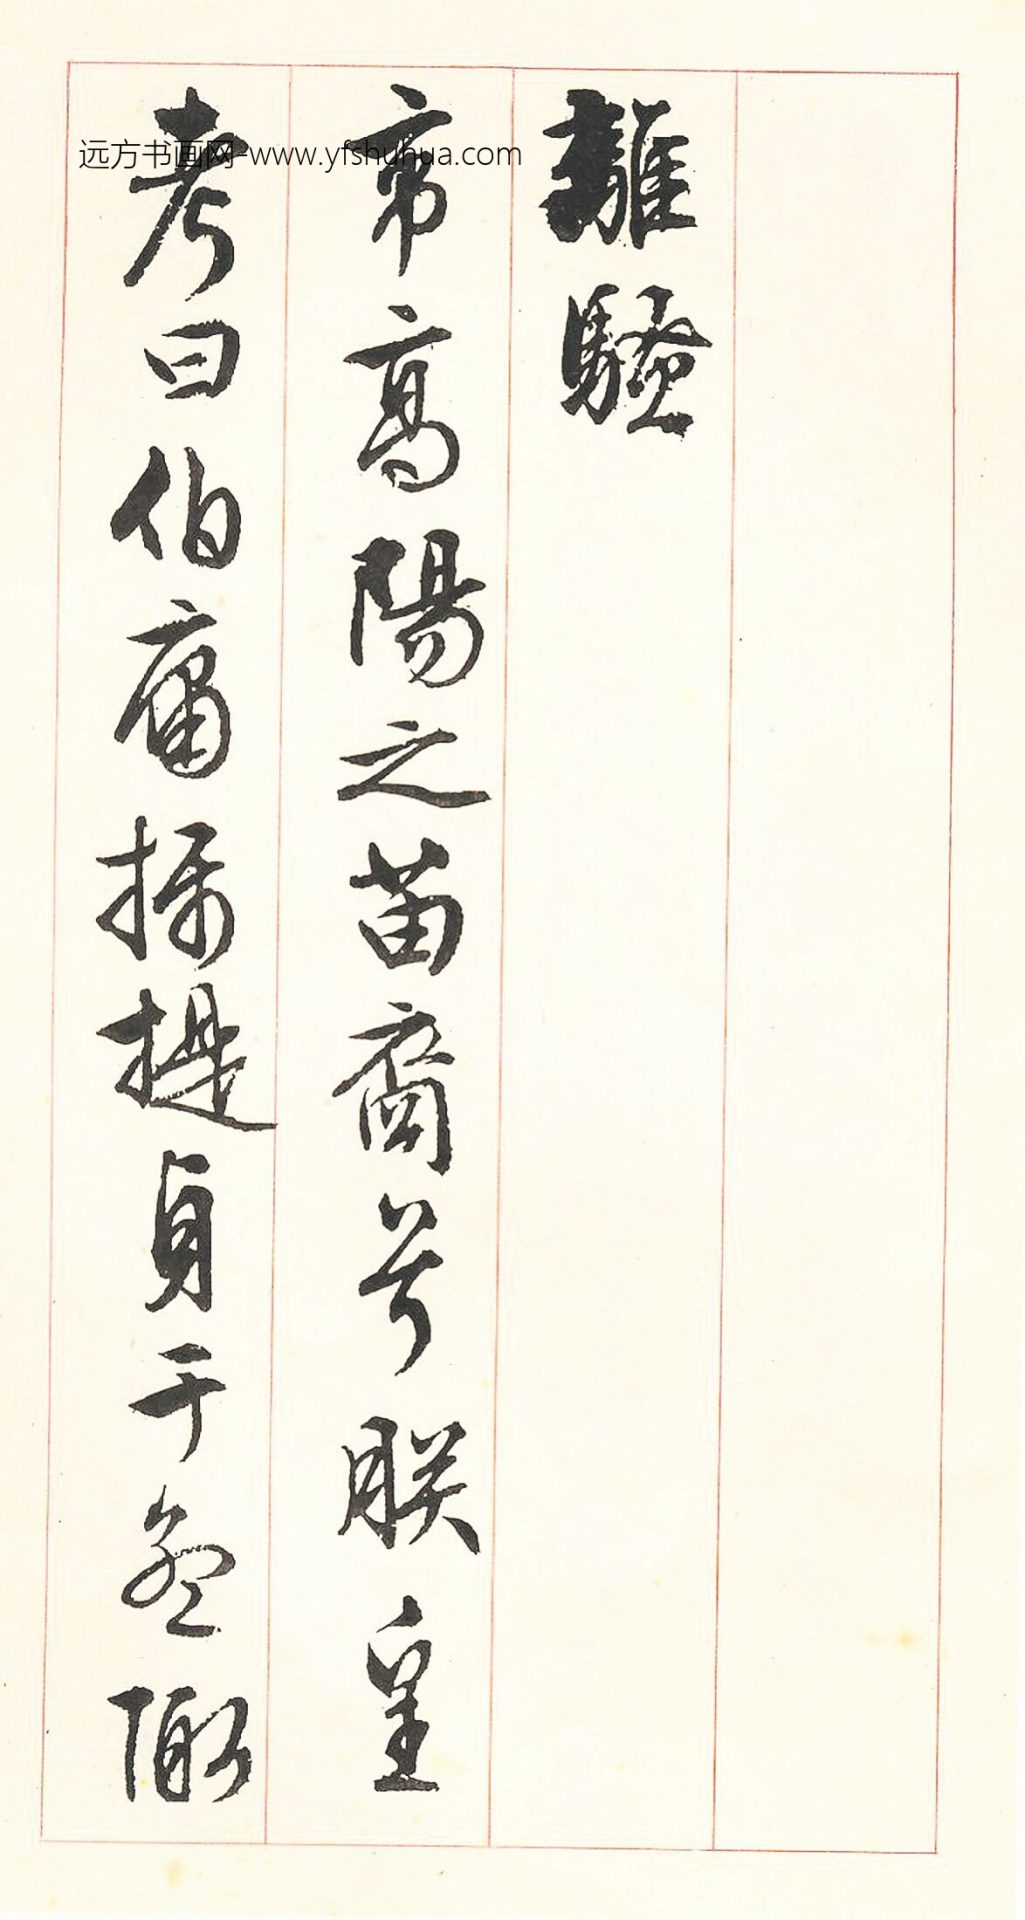 離騷
帝高陽之苗裔兮朕皇
考曰伯庸攝提貞于孟陬
远方书画网-www.yfshuhua.com